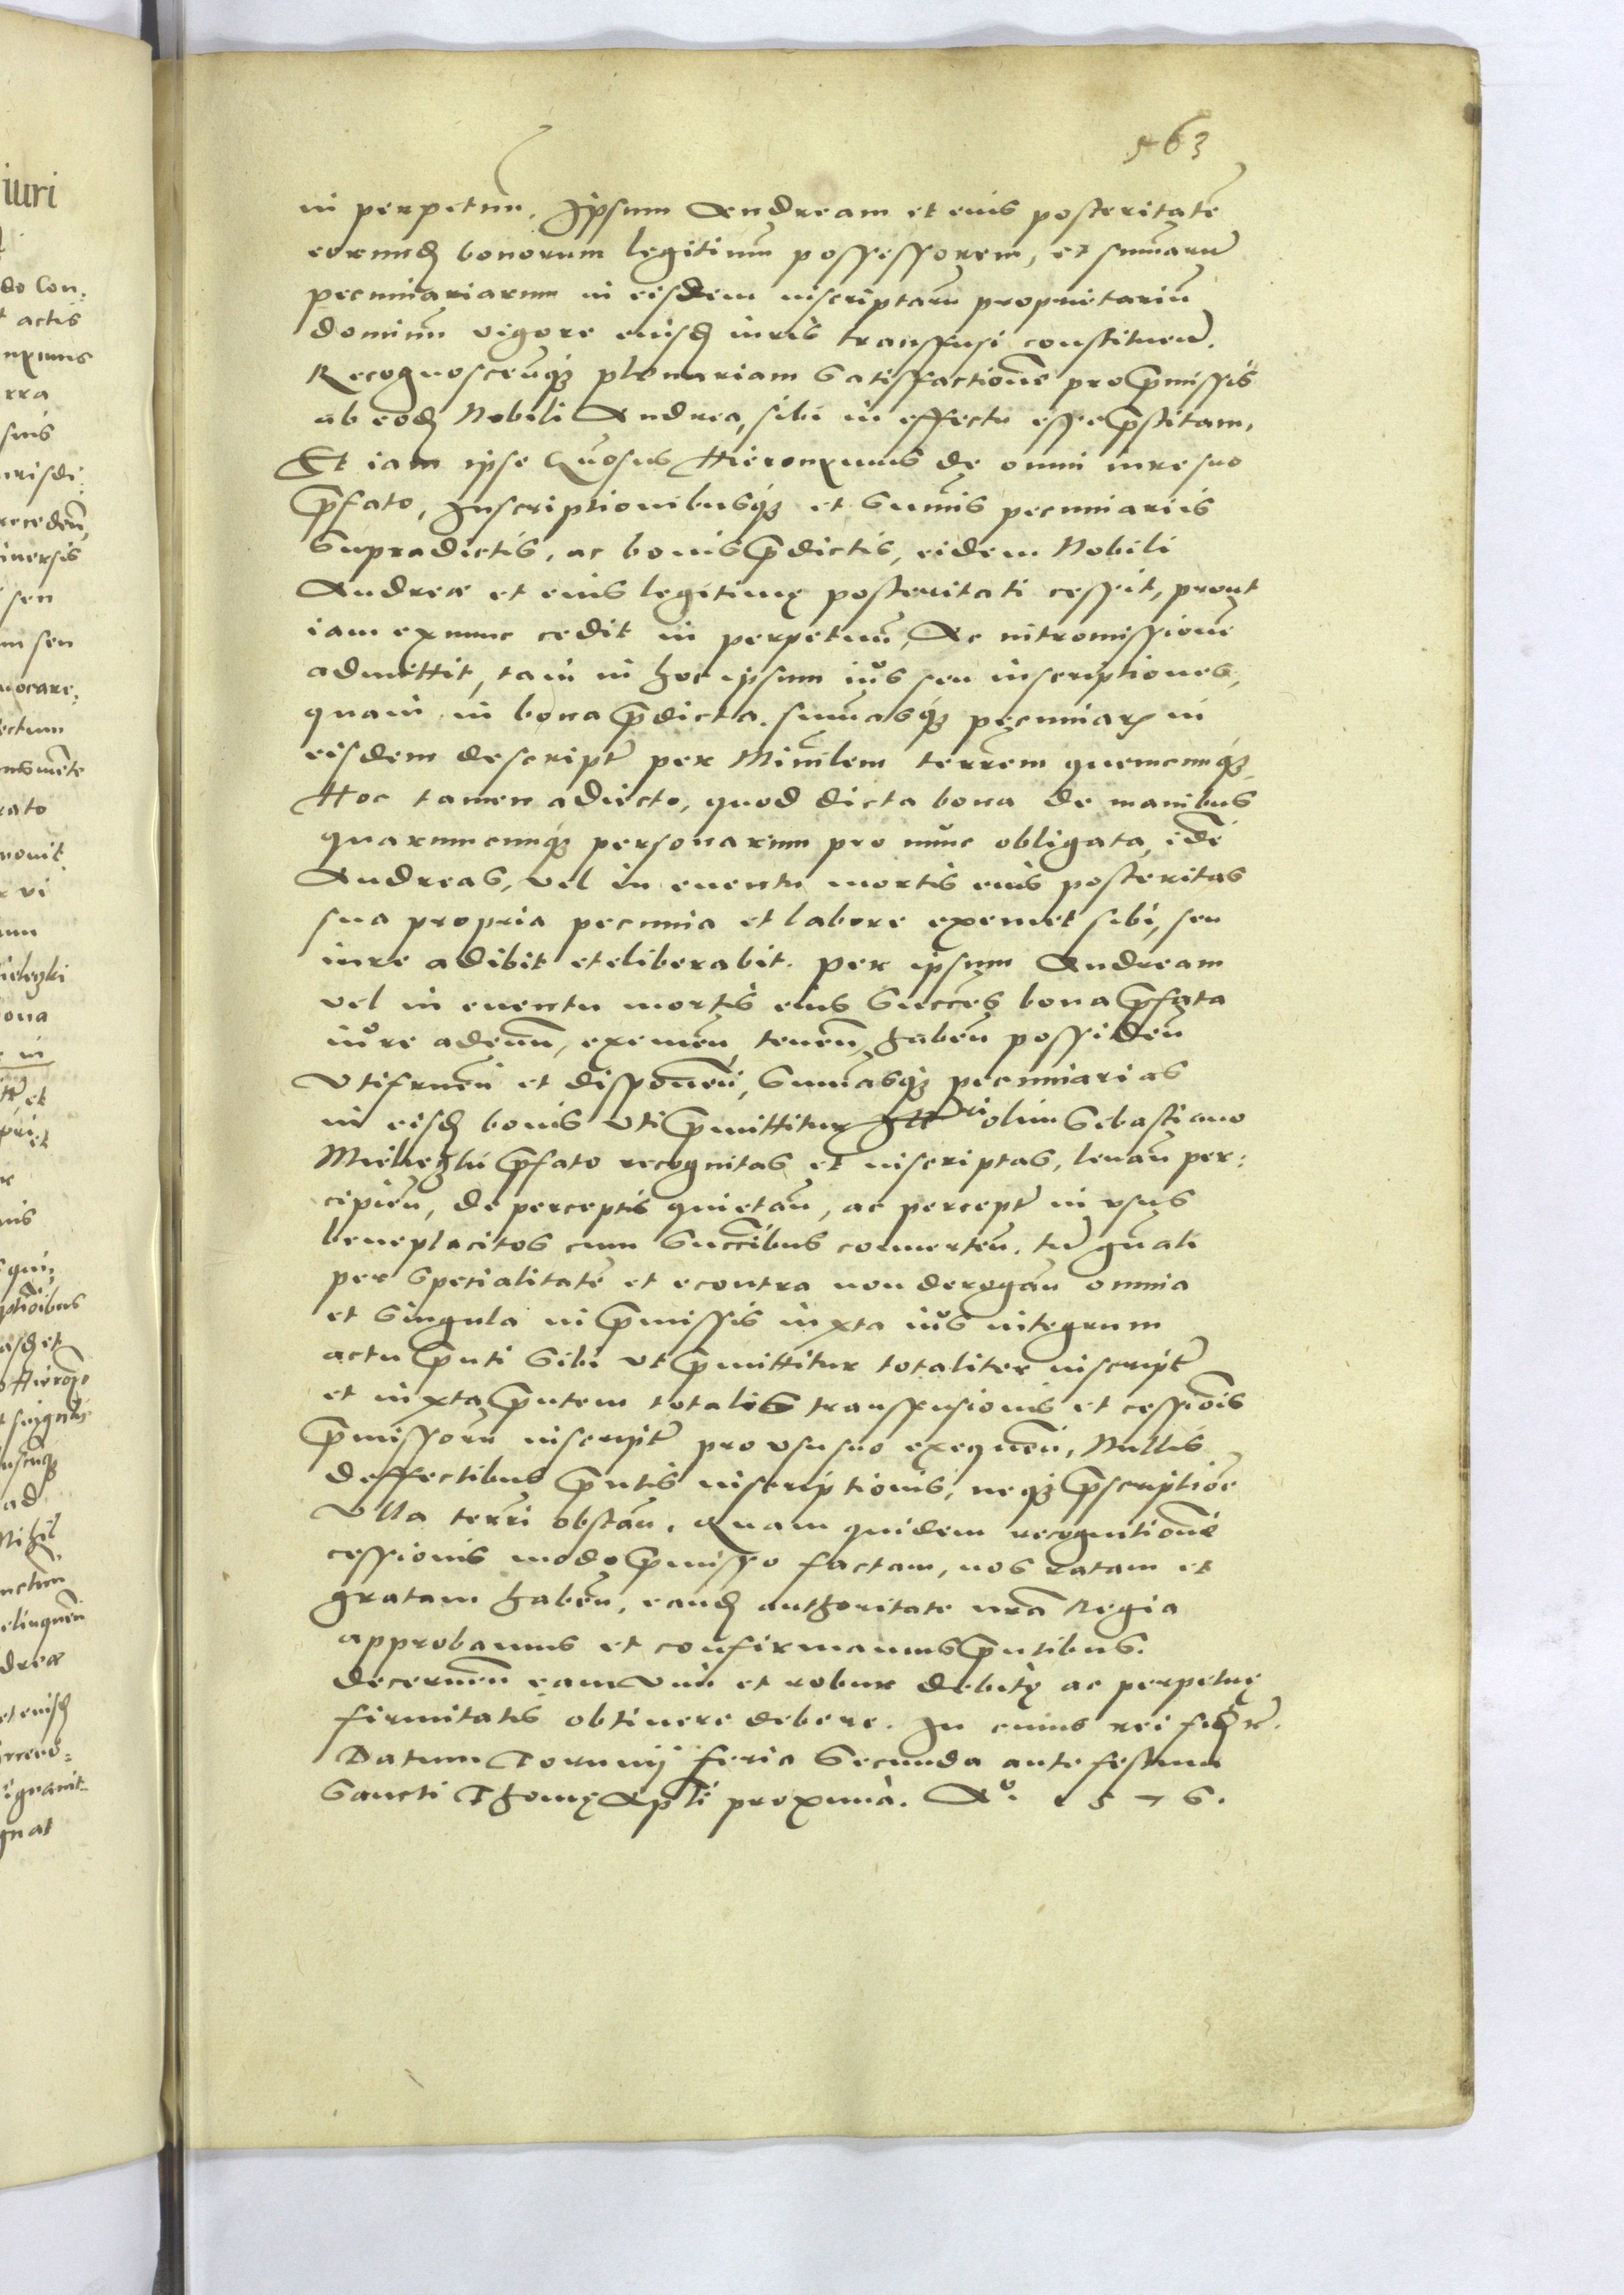 563
in perpetuū, Ipsum Andream et eius posteritatē
eorundē bonorum legitimū possessorem, et summarū
pecuniariarum in eisdem inscriptarū proprietariū
dominū vigore eiusdē iuris transfusi constituen̄.
Recognoscen̄q̨ plenariam satisfactionē pro p̄missis
ab eodē Nobili Andrea, sibi in effectu esse p̄stitam,
Et iam ipse Gn̄osus Hieronymus de omni iure suo
p̄fato, Inscriptionibusq̨ et summis pecuniariis
supradictis, ac bonis p̄dictis, eidem Nobili
Andreæ et eius legitimę posteritati cessit, prout
iam ex nunc cedit in perpetuū, Ac intromissionē
admittit, tam in hoc ipsum ius seu inscriptiones,
quam in bona p̄dicta summasq̨ pecuniar̄ in
eisdem descript̄ per Min̄rlem terrēm quemcumq̨,
Hoc tamen adiecto, quod dicta bona de manibus
quarumcunq̨ personarum pro nunc obligata, idē
Andreas, vel in euentu mortis eius posteritas
sua propria pecunia et labore exemet sibi, seu
iure adibit et eliberabit. per ipsum Andream
vel in euentu mortis eius Succes̄ bona p̄fata
iure adeun̄, exemen̄, tenen̄, haben̄ possiden̄
Vtifruen̄ et disponen̄, Summasq̨ pecuniarias
in eisdē bonis vti p̄mittitur olim Sebastiano
Mieleczki p̄fato recognitas et inscriptas, leuan̄ per:
cipien̄, de perceptis quietan̄, ac percept̄ in vsus
beneplacitos cum Succ̄ibus conuerten̄. Ita gn̄ali
per specialitatē et econtra non derogan̄ omnia
et singula in p̄missis iuxta ius integrum
actu p̄nti sibi vt p̄mittitur totaliter inscript̄
et iuxta p̄ntem totalis transfusionis et cessiōis
p̄missorū inscript̄ pro vsu suo exequen̄, Nullis
deffectibus p̄ntis inscriptionis, neq̨ p̄scriptiōe
Vlla terr̄ri obstan̄. Quam quidem recognitionē
cessionis modo p̄misso factam, nos ratam et
gratam haben̄, eandē authoritate nrā Regia
approbamus et confirmamus p̄ntibus.
decernen̄ eam vim et robur debitę ac perpetuę
firmitatis obtinere debere. In cuius rei fidē rc̄.
Datum Torunij feria secunda ante festum
Sancti Thomę Apłi proxima. Aº. 1576.